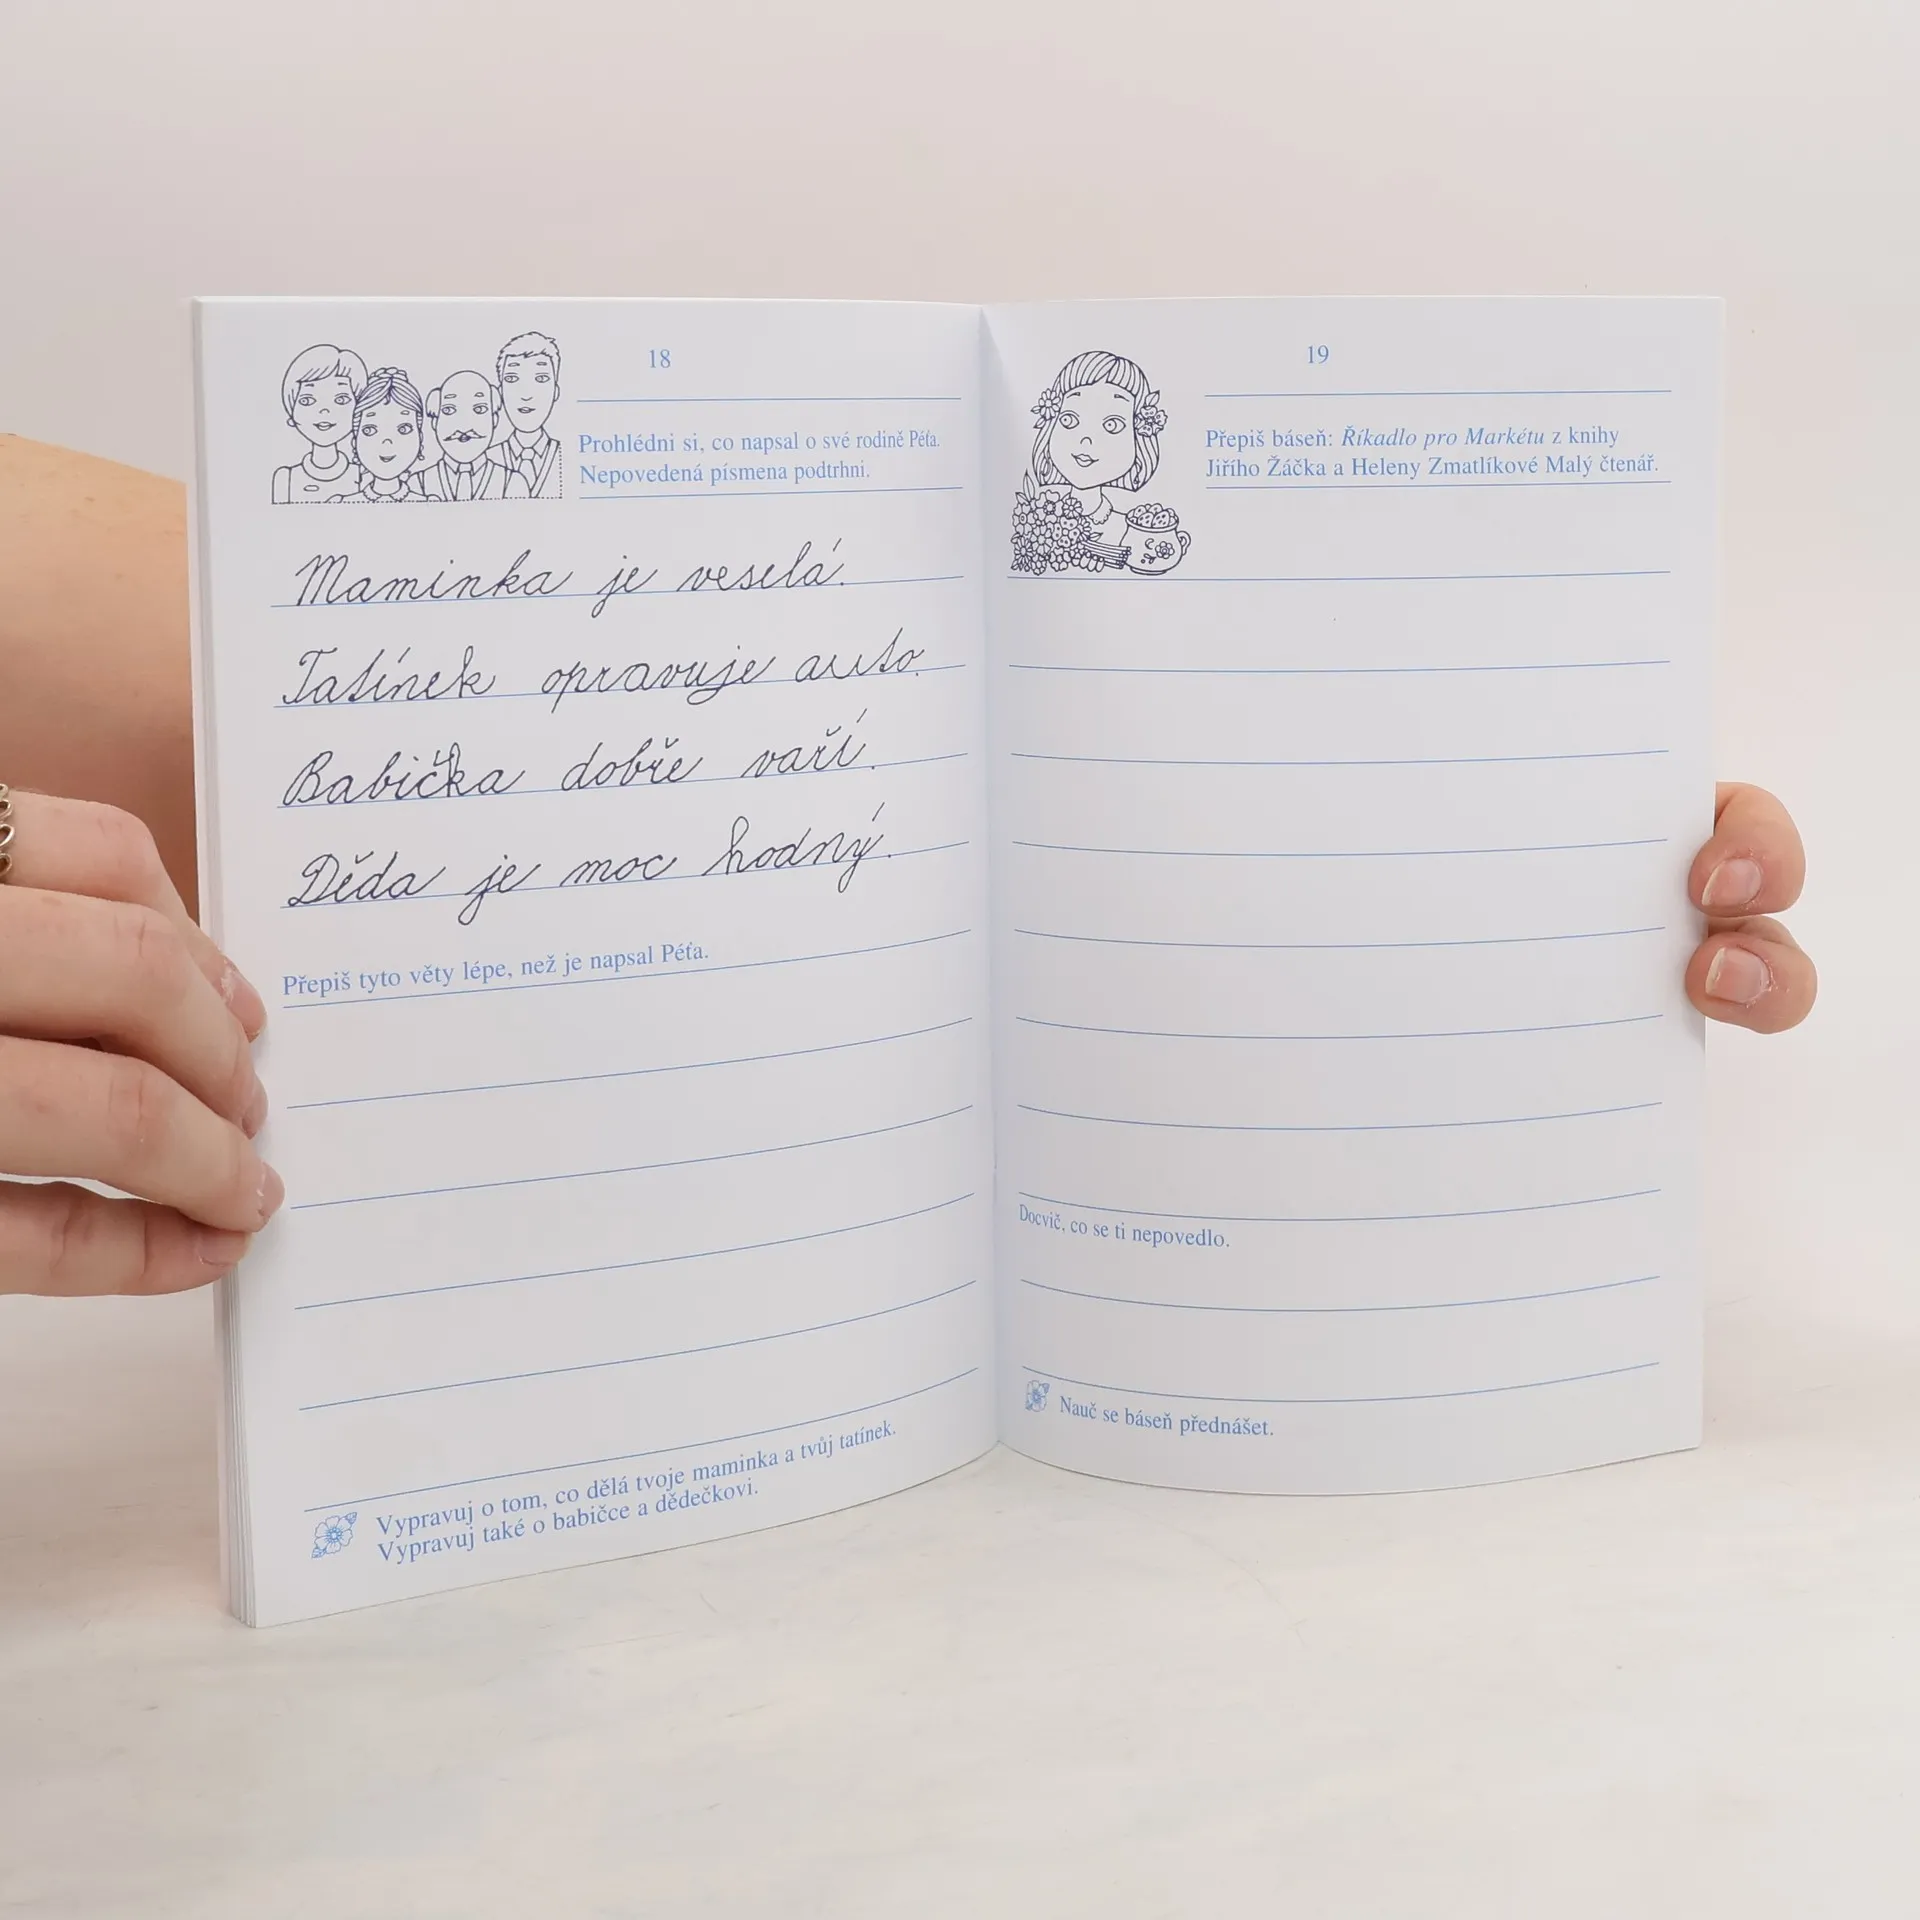 18
Prohlédni si, co napsal o své rodině Péťa.
Nepovedená písmena podtrhni.
Maminka je veselá.
Tatínek opravuje auto.
Babička dobře vaří.
Děda je moc hodný.
Přepiš tyto věty lépe, než je napsal Péťa.
Vypravuj o tom, co dělá tvoje maminka a tvůj tatínek.
Vypravuj také o babičce a dědečkovi.
19
Přepiš báseň: Říkadlo pro Markétu z knihy
Jiřího Žáčka a Heleny Zmatlíkové Malý čtenář.
Docvič, co se ti nepovedlo.
Nauč se báseň přednášet.